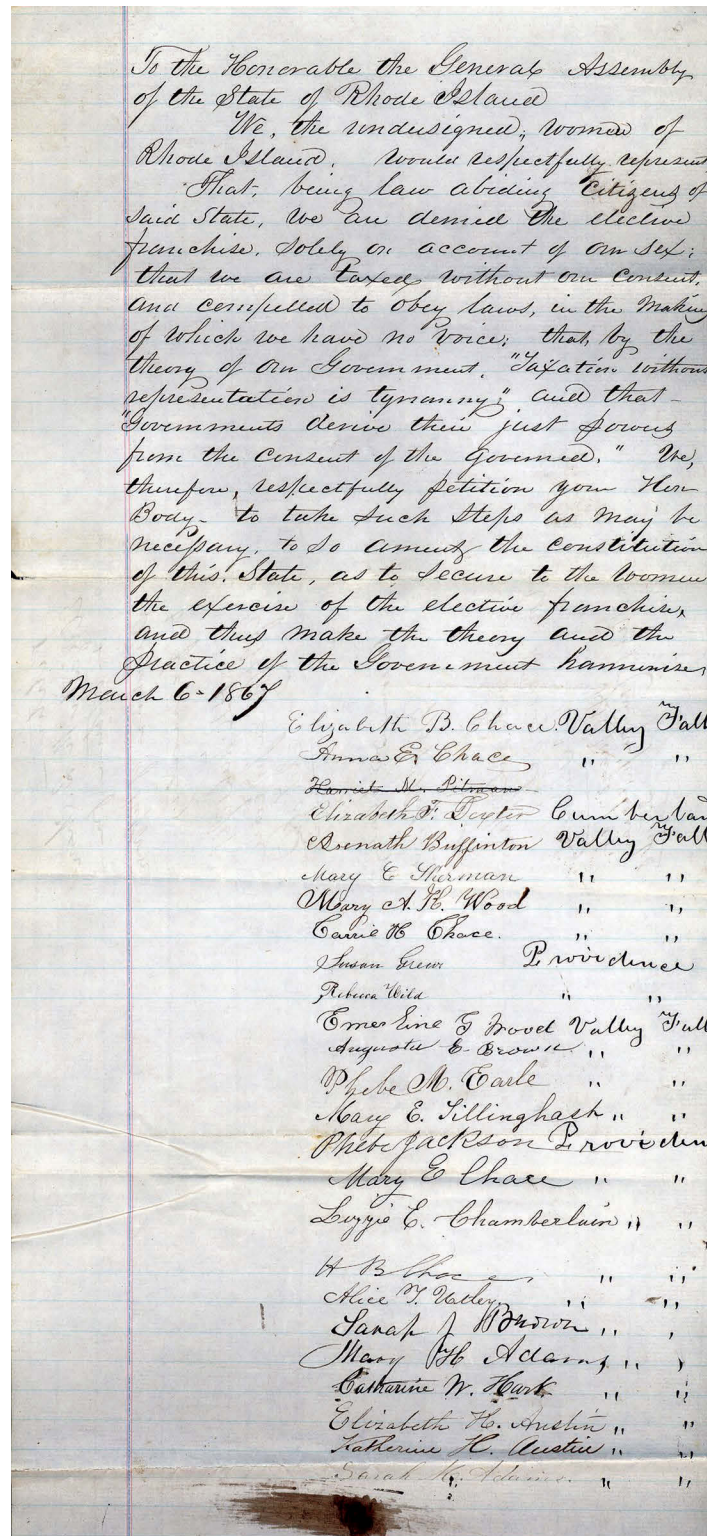 To the Honorable the General Assembly
of the State of Rhode Island
We, the undersigned, women of
Rhode Island, would respectfully represent
That, being law abiding citizens of
said State, we are denied the elective
franchise, solely on account of our sex;
that we are taxed without our consent,
and compelled to obey laws, in the making
of which we have no voice; that, by the
theory of our Government, "Taxation without
representation is tyranny;" and that
"Governments derive their just powers
from the consent of the governed." We,
therefore, respectfully petition your Hon
Body to take such steps as may be
necessary, to so amend the constitution
of this State, as to secure to the women
the exercise of the elective franchise,
and thus make the theory and the
practice of the Government harmonise.
March 6 - 1867
Elizabeth B. Chace. Valley Fall
Anna E. Chace " "
Harriet M. Pitman
Elizabeth F. Dexter Cumberlan
Asenath Buffinton Valley Fall
Mary E Sherman " "
Mary A. H. Wood " "
Carrie H Chace. " "
Susan Grew Providence
Rebecca Wild " "
Emer line G Wood Valley Fall
Augusta E. Brown " "
Phebe M. Earle " "
Mary E. Tillinghast " "
Phebe Jackson Providen
Mary E Chace " "
Lizzie E. Chamberlain " "
H B Chace " "
Alice T. " "
Sarah J Brown " "
Mary H Adams " "
Catharine W. Hark " "
Elizabeth H. Austin " "
Katherine H. Austin " "
Sarah K. Adams. " "